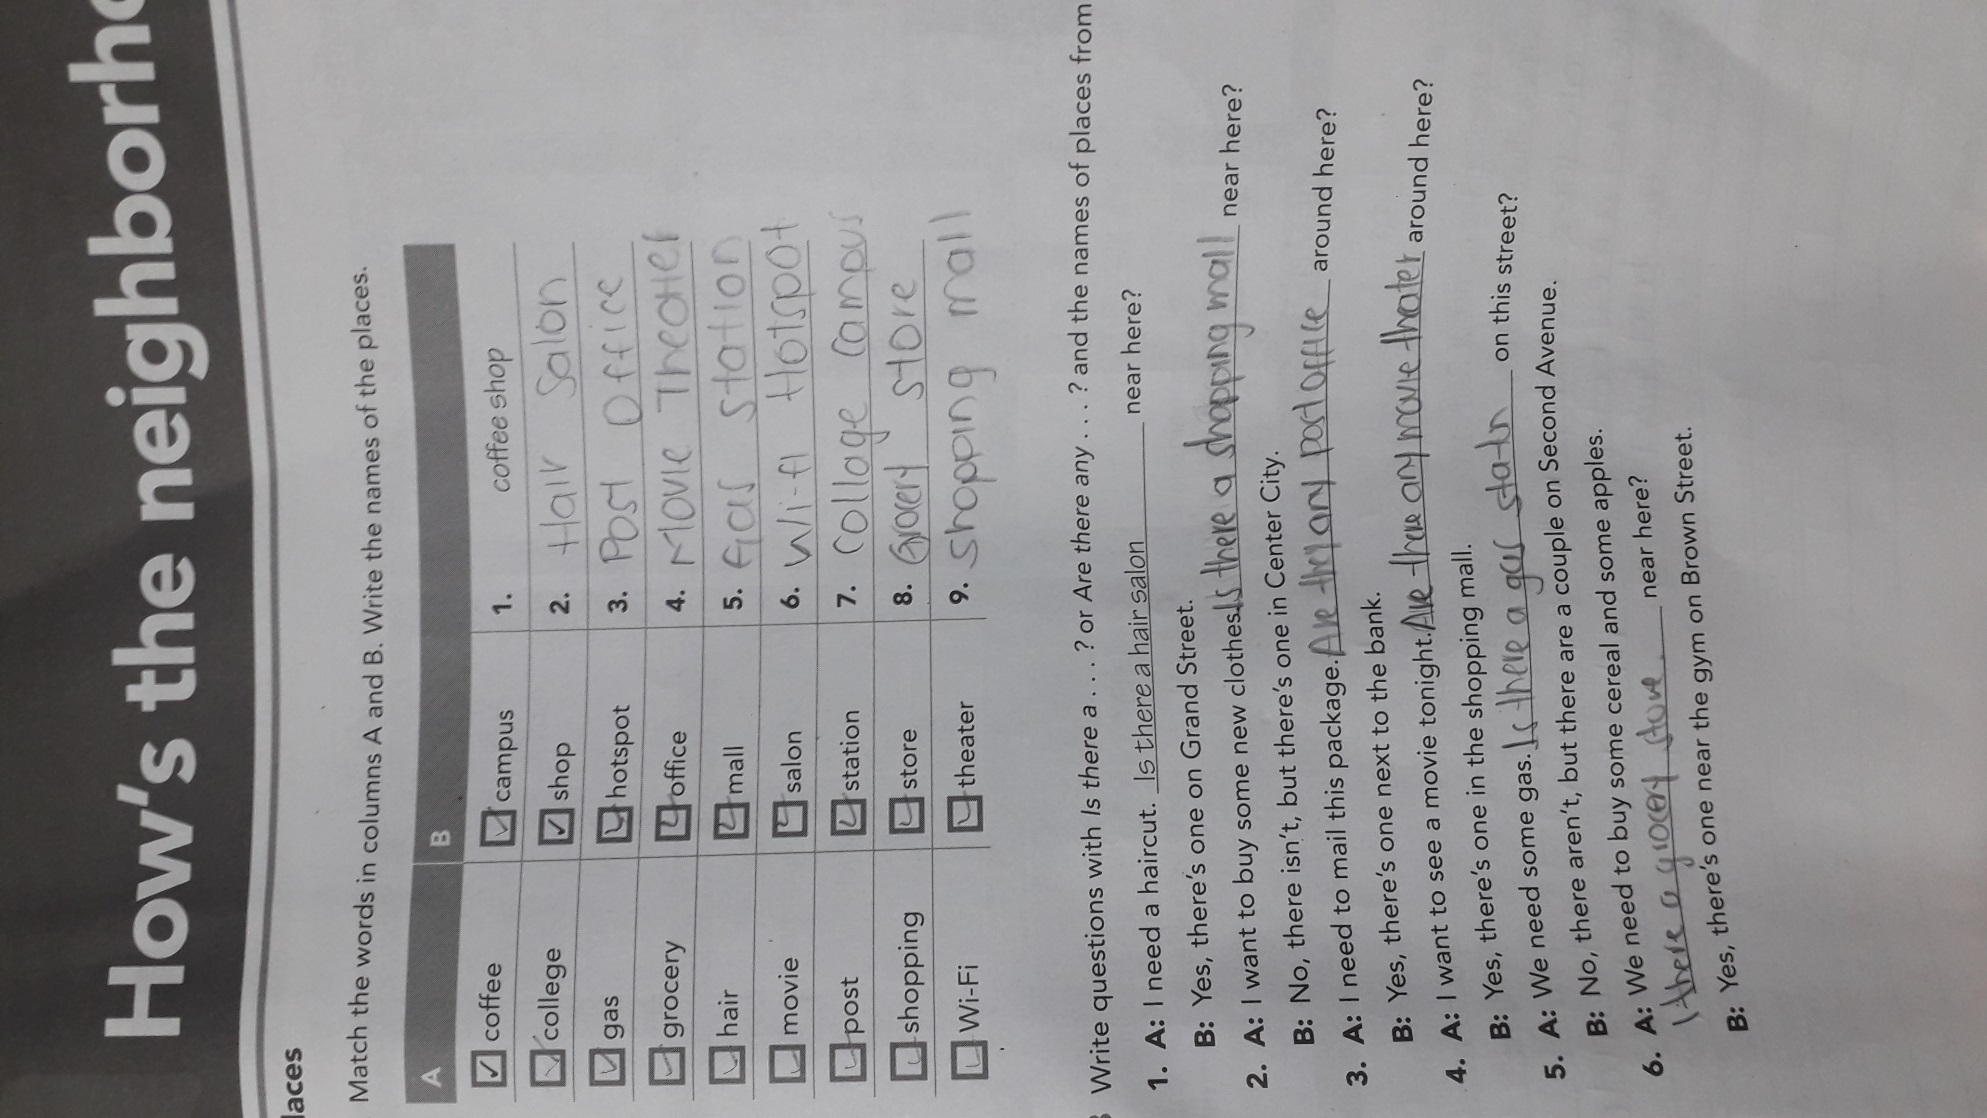 How's the neighborho
laces
Match the words in columns A and B. Write the names of the places.
A B
coffee campus 1. coffee shop
college shop 2. Hair Salon
gas hotspot 3. Post Office
grocery office 4. Movie Theather
hair mall 5. Gas station
movie salon 6. Wi-fi Hotspot
post station 7. Collage Campus
shopping store 8. Grocery store
Wi-Fi theater 9. Shopping mall
Write questions with Is there a . . . ? or Are there any . . . ? and the names of places from
1. A: I need a haircut. Is there a hair salon near here?
B: Yes, there's one on Grand Street.
2. A: I want to buy some new clothes. Is there a shopping mall near here?
B: No, there isn't, but there's one in Center City.
3. A: I need to mail this package. Are they any post office around here?
B: Yes, there's one next to the bank.
4. A: I want to see a movie tonight. Are there any movie theater around here?
B: Yes, there's one in the shopping mall.
5. A: We need some gas. Is there a gas statn on this street?
B: No, there aren't, but there are a couple on Second Avenue.
6. A: We need to buy some cereal and some apples.
I there a grocery store near here?
B: Yes, there's one near the gym on Brown Street.